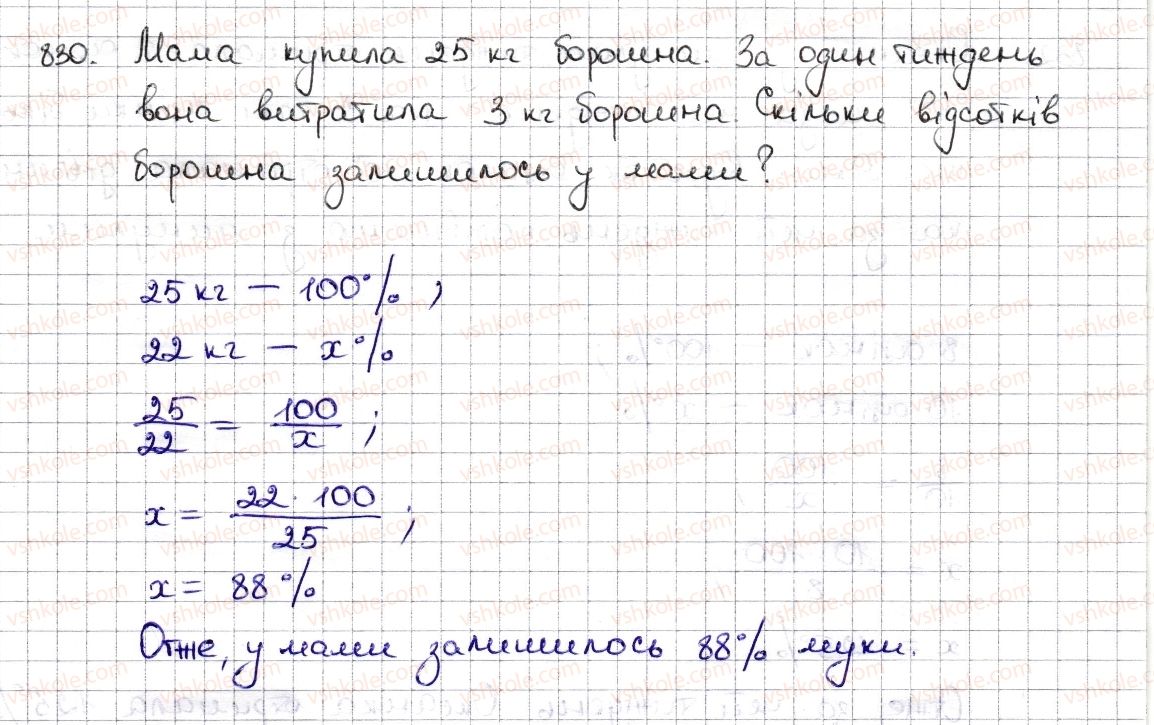 830. Мама купила 25 кг борошна. За один тиждень
вона витратила 3 кг борошна. Скільки відсотків
борошна залишилось у мами?
25 кг – 100% ;
22 кг – x%
25/22 = 100/x ;
x = 22 · 100 / 25 ;
x = 88%
Отже, у мами залишилось 88% муки.